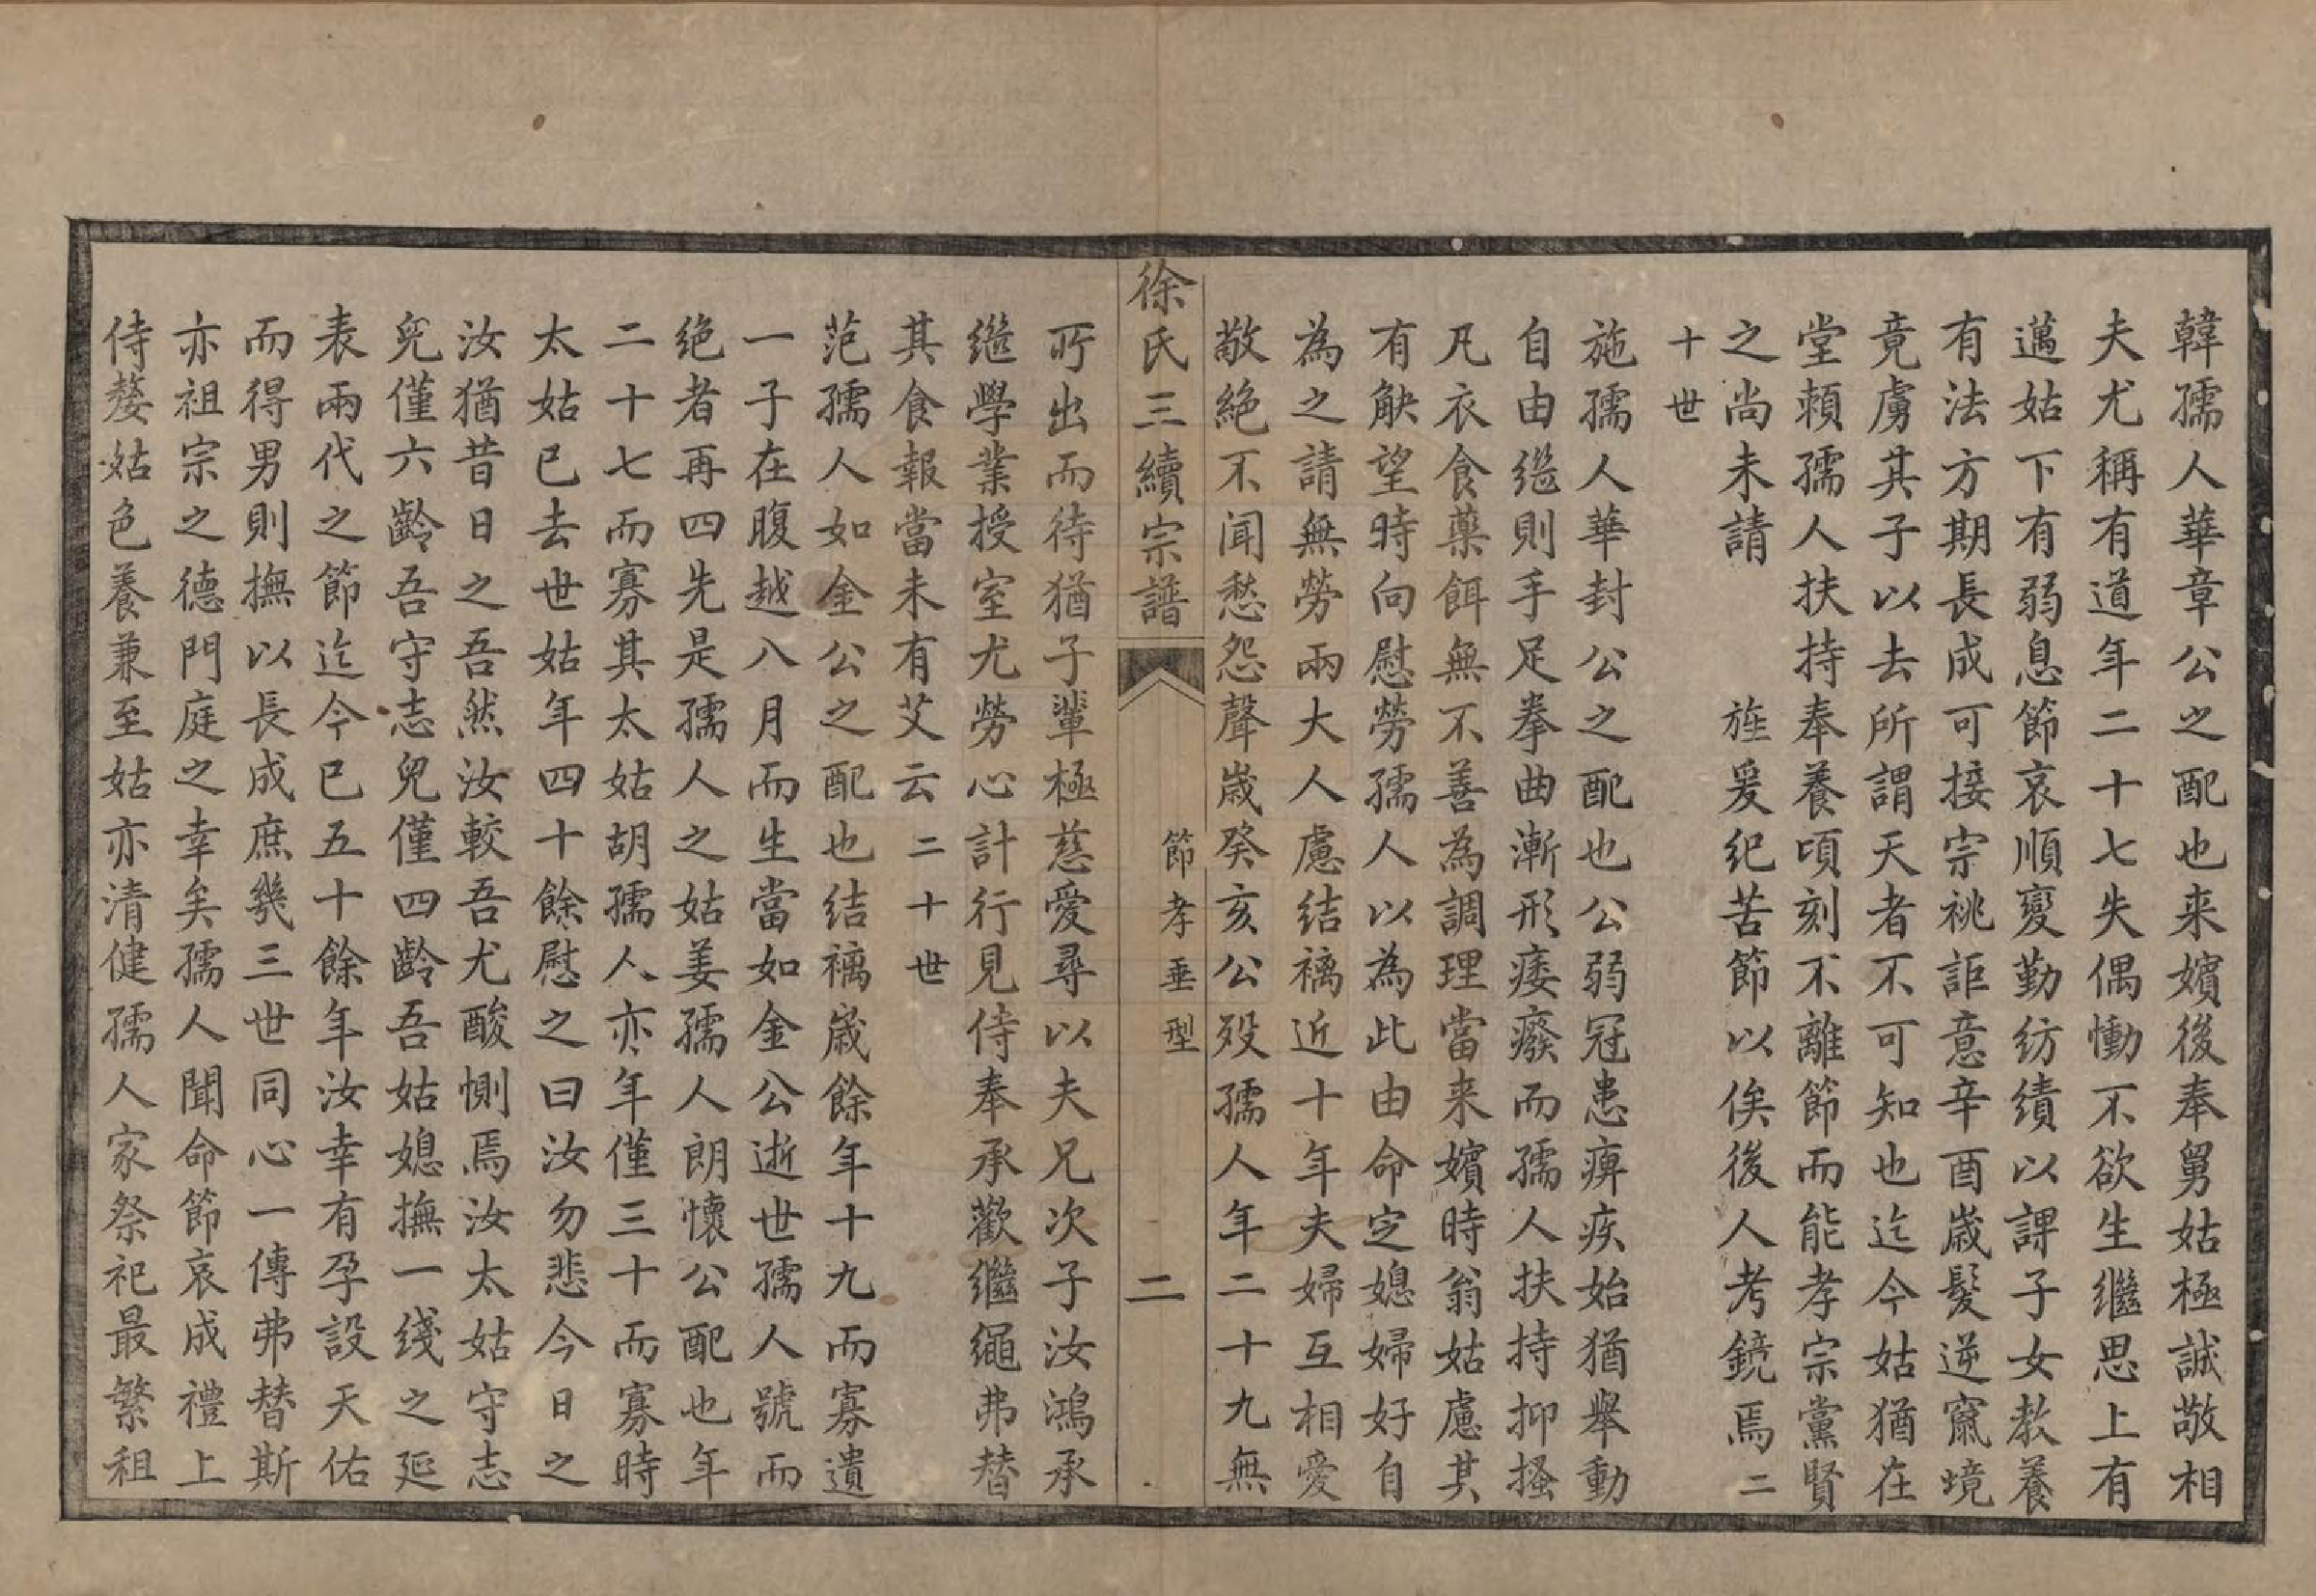 韓孺人華章公之配也来嬪後奉舅姑極誠敬相
夫尤稱有道年二十七失偶慟不欲生繼思上有
邁姑下有弱息節哀順變勤纺績以課子女教養
有法方期長成可接宗祧詎意辛酉歲髮逆竄境
竟虜其子以去所謂天者不可知也迄今姑猶在
堂賴孺人扶持奉養頃刻不離節而能孝宗黨賢
之尚未請　　旌爰紀苦節以俟後人考鏡焉二
十世
施孺人華封公之配也公弱冠患痹疾始猶舉動
自由继則手足拳曲漸形痿癈而孺人扶持抑搔
凡衣食藥餌無不善為調理當来嬪時翁姑慮其
有觖望時向慰勞孺人以為此由命定媳婦好自
為之請無勞兩大人慮结褵近十年夫婦互相愛
敬絶不闻愁怨聲歲癸亥公殁孺人年二十九無
徐氏三續宗譜
節孝垂型
二
所出而待猶子輩極慈愛尋以夫兄次子汝鴻承
继學業授室尤勞心計行見侍奉承歡繼繩弗替
其食報當未有艾云二十世
范孺人如金公之配也结褵歲餘年十九而寡遺
一子在腹越八月而生當如金公逝世孺人號而
绝者再四先是孺人之姑姜孺人朗懷公配也年
二十七而寡其太姑胡孺人亦年僅三十而寡時
太姑已去世姑年四十餘慰之曰汝勿悲今日之
汝猶昔日之吾然汝較吾尤酸惻焉汝太姑守志
兒僅六齡吾守志兒僅四齡吾姑媳撫一綫之延
表兩代之節迄今已五十餘年汝幸有孕設天佑
而得男則撫以長成庶幾三世同心一傳弗替斯
亦祖宗之德門庭之幸矣孺人聞命節哀成禮上
侍嫠姑色養兼至姑亦清健孺人家祭祀最繁祖